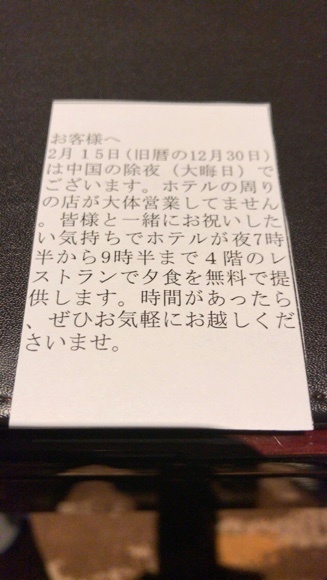 お客様へ
2月１５日(旧暦の12月30日)
は中国の除夜（大晦日）で
ございます。ホテルの周り
の店が大体営業してません
。皆様と一緒にお祝いした
い気持ちでホテルが夜7時
半から9時半まで４階のレ
ストランで夕食を無料で提
供します。時間があったら
、ぜひお気軽にお越しくだ
さいませ。